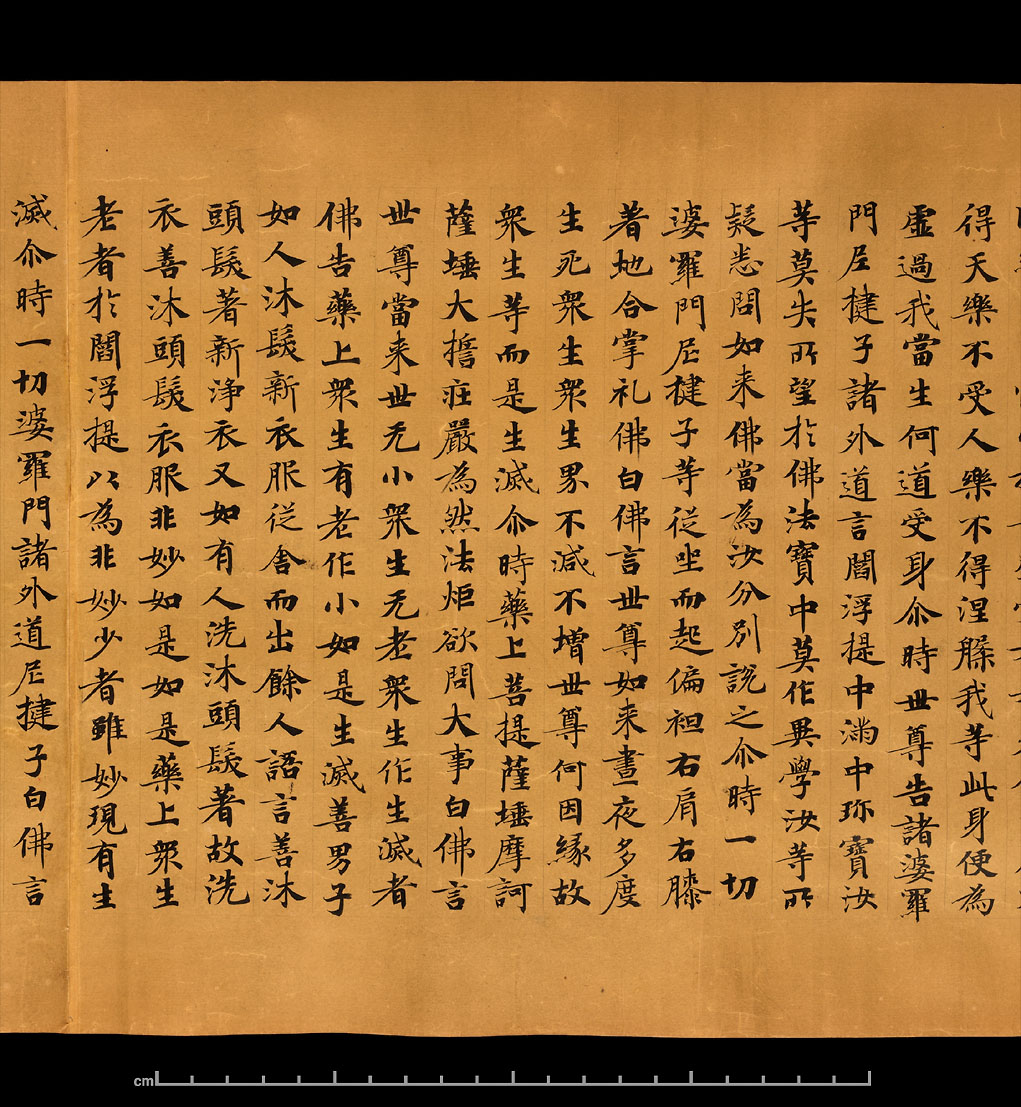 得天樂不受人樂不得涅槃我等此身便為
虛過我當生何道受身尒時世尊告諸婆羅
門尼揵子諸外道言閻浮提中滿中珎寶汝
等莫失所望於佛法寶中莫作異學汝等所
疑悉問如来佛當為汝分別說之尒時一切
婆羅門尼揵子等従坐而起偏袒右肩右膝
著地合掌礼佛白佛言世尊如来晝夜多度
生死衆生衆生界不減不增世尊何因緣故
衆生等而是生滅尒時藥上菩提薩埵摩訶
薩埵大擔荘嚴為然法炬欲問大事白佛言
世尊當来世无小衆生无老衆生作生滅者
佛告藥上衆生有老作小如是生滅善男子
如人沐髮新衣服従舍而出餘人語言善沐
頭髮著新淨衣又如有人洗沐頭髮著故洗
衣善沐頭髮衣服非妙如是如是藥上衆生
老者於閻浮提以為非妙少者雖妙現有生
滅尒時一切婆羅門諸外道尼揵子白佛言